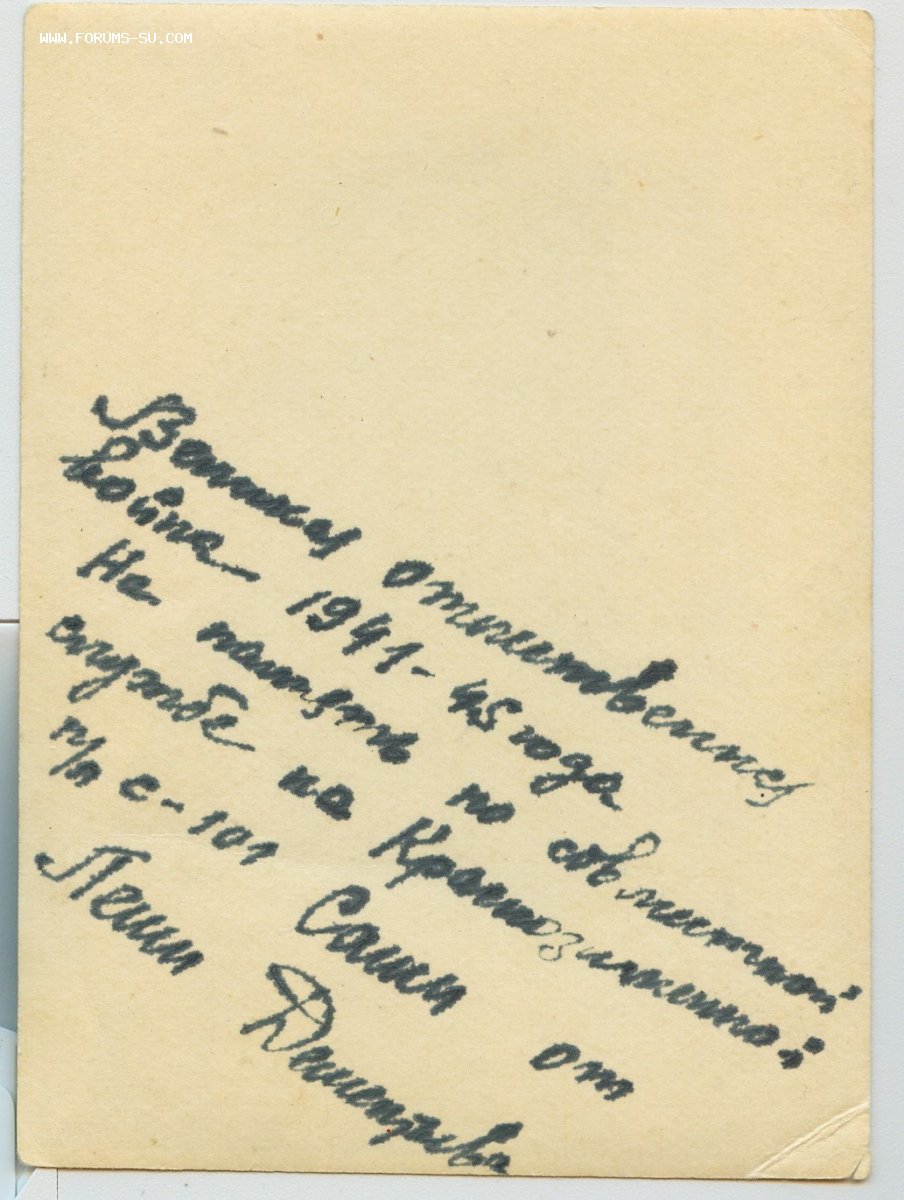 WWW.FORUMS-SU.COM
Великая отечественная
война 1941-45 года
На память по совместной
службе на Краснознаменной
п/л С-101 Саши от
Лени Дементьева